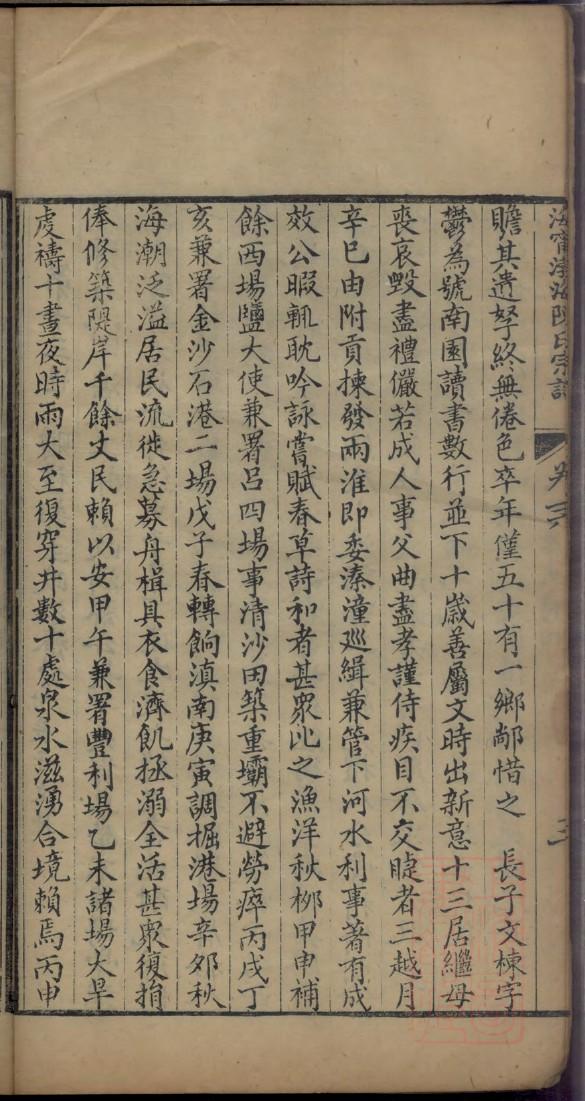 海寧渤海陳氏宗譜
卷六
三
贍其遺孥終無倦色卒年僅五十有一鄉鄰惜之　長子文棟字
鬱為號南園讀書數行並下十歲善屬文時出新意十三居繼母
喪哀毀盡禮儼若成人事父曲盡孝謹侍疾目不交睫者三越月
辛巳由附貢揀發兩淮即委溱潼廵緝兼管下河水利事著有成
效公暇輒耽吟詠嘗賦春草詩和者甚眾比之漁洋秋栁甲申補
餘西場鹽大使兼署呂四場事清沙田築重壩不避勞瘁丙戌丁
亥兼署金沙石港二場戊子春轉餉滇南庚寅調掘港場辛卯秋
海潮泛溢居民流徙急募舟楫具衣食濟飢拯溺全活甚眾復捐
俸修築隄岸千餘丈民賴以安甲午兼署豐利場乙未諸場大旱
虔禱十晝夜時雨大至復穿井數十處泉水滋湧合境賴焉丙申